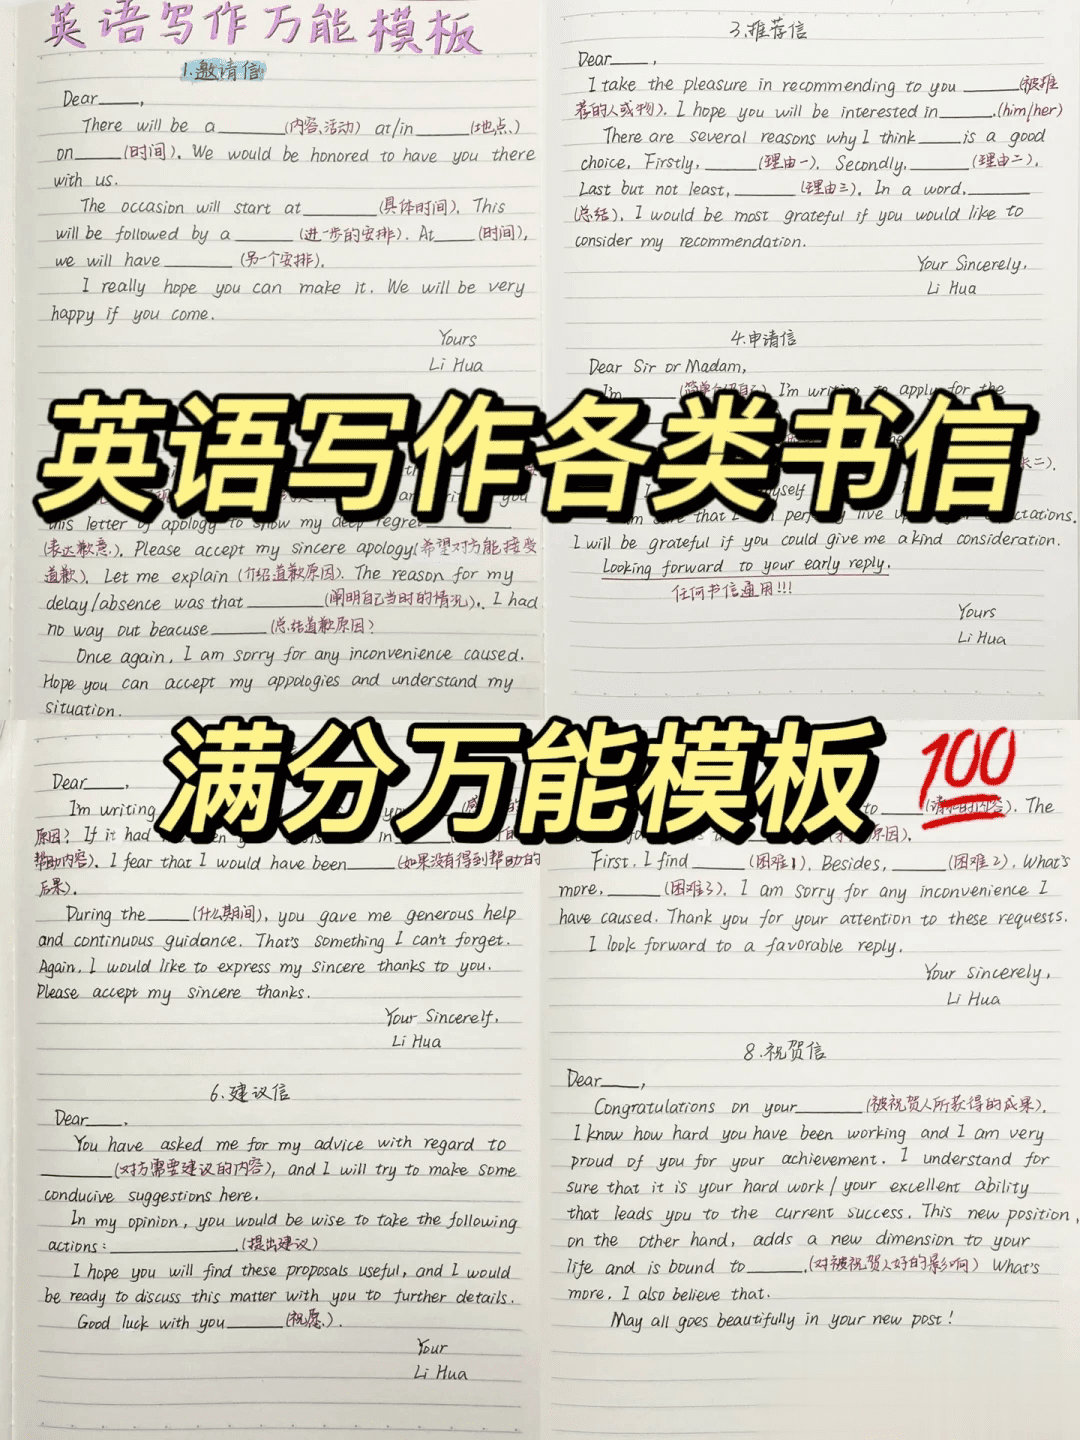 英语写作万能模板
1.邀请信
Dear____,
There will be a ______(内容、活动) at/in _____(地点、)
on____(时间). We would be honored to have you there
with us.
The occasion will start at ______(具体时间). This
will be followed by a ______(进一步的安排). At____(时间),
we will have ______(另一个安排).
I really hope you can make it. We will be very
happy if you come.
Yours
Li Hua
英语写作各类书信
this letter of apology to show my deep regret
(表达歉意). Please accept my sincere apology(希望对方能接受
道歉). Let me explain (介绍道歉原因). The reason for my
delay/absence was that ______(阐明自己当时的情况). I had
no way out beacuse _____(总结道歉原因?
Once again, I am sorry for any inconvenience caused.
Hope you can accept my appologies and understand my
situation.
3.推荐信
Dear____,
I take the pleasure in recommending to you _____(被推
荐的人或物). I hope you will be interested in_____.(him/her)
There are several reasons why I think ____is a good
choice. Firstly, _____(理由一). Secondly, _____(理由二).
Last but not least, _____(理由三). In a word, _____
(总结). I would be most grateful if you would like to
consider my recommendation.
Your Sincerely,
Li Hua
4.申请信
Dear Sir or Madam,
I'm (简单介绍自己) I'm writing to apply for the
I will be grateful if you could give me a kind consideration.
Looking forward to your early reply.
任何书信通用!!!
Yours
Li Hua
满分万能模板 💯
Dear____,
I'm writing
原因? If it had
帮助内容). I fear that I would have been____(如果没有得到帮助的
后果).
During the ____(什么期间), you gave me generous help
and continuous guidance. That's something I can't forget.
Again, I would like to express my sincere thanks to you.
Please accept my sincere thanks.
Your Sincerelf,
Li Hua
6.建议信
Dear____.
You have asked me for my advice with regard to
______(对方需要建议的内容), and I will try to make some
conducive suggestions here.
In my opinion, you would be wise to take the following
actions: __________.(提出建议)
I hope you will find these proposals useful, and I would
be ready to discuss this matter with you to further details.
Good luck with you_____(祝愿、).
Your
Li Hua
The
First, I find _____(困难1). Besides, _____(困难2). What's
more, _____(困难3). I am sorry for any inconvenience I
have caused. Thank you for your attention to these requests.
I look forward to a favorable reply.
Your sincerely,
Li Hua
8.祝贺信
Dear____,
Congratulations on your______(被祝贺人所获得的成果).
I know how hard you have been working and I am very
proud of you for your achievement. I understand for
sure that it is your hard work/your excellent ability
that leads you to the current success. This new position,
on the other hand, adds a new dimension to your
life and is bound to_____.(对被祝贺人好的影响) What's
more, I also believe that.
May all goes beautifully in your new post!